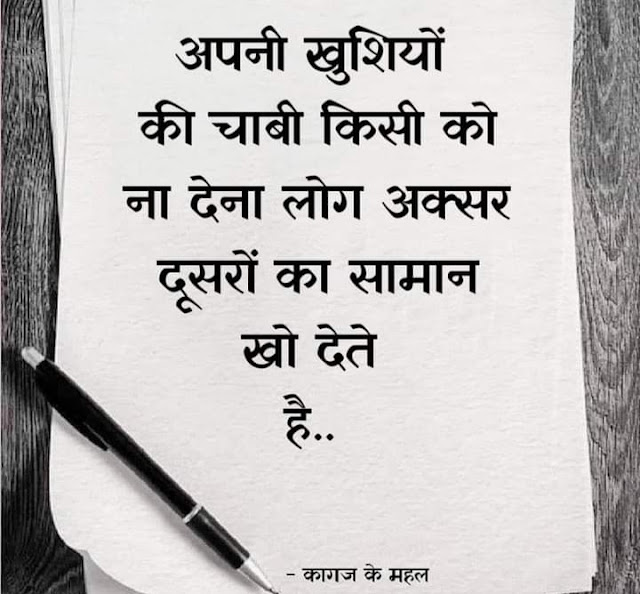 अपनी खुशियों
की चाबी किसी को
ना देना लोग अक्सर
दूसरों का सामान
खो देते
है..
- कागज के महल